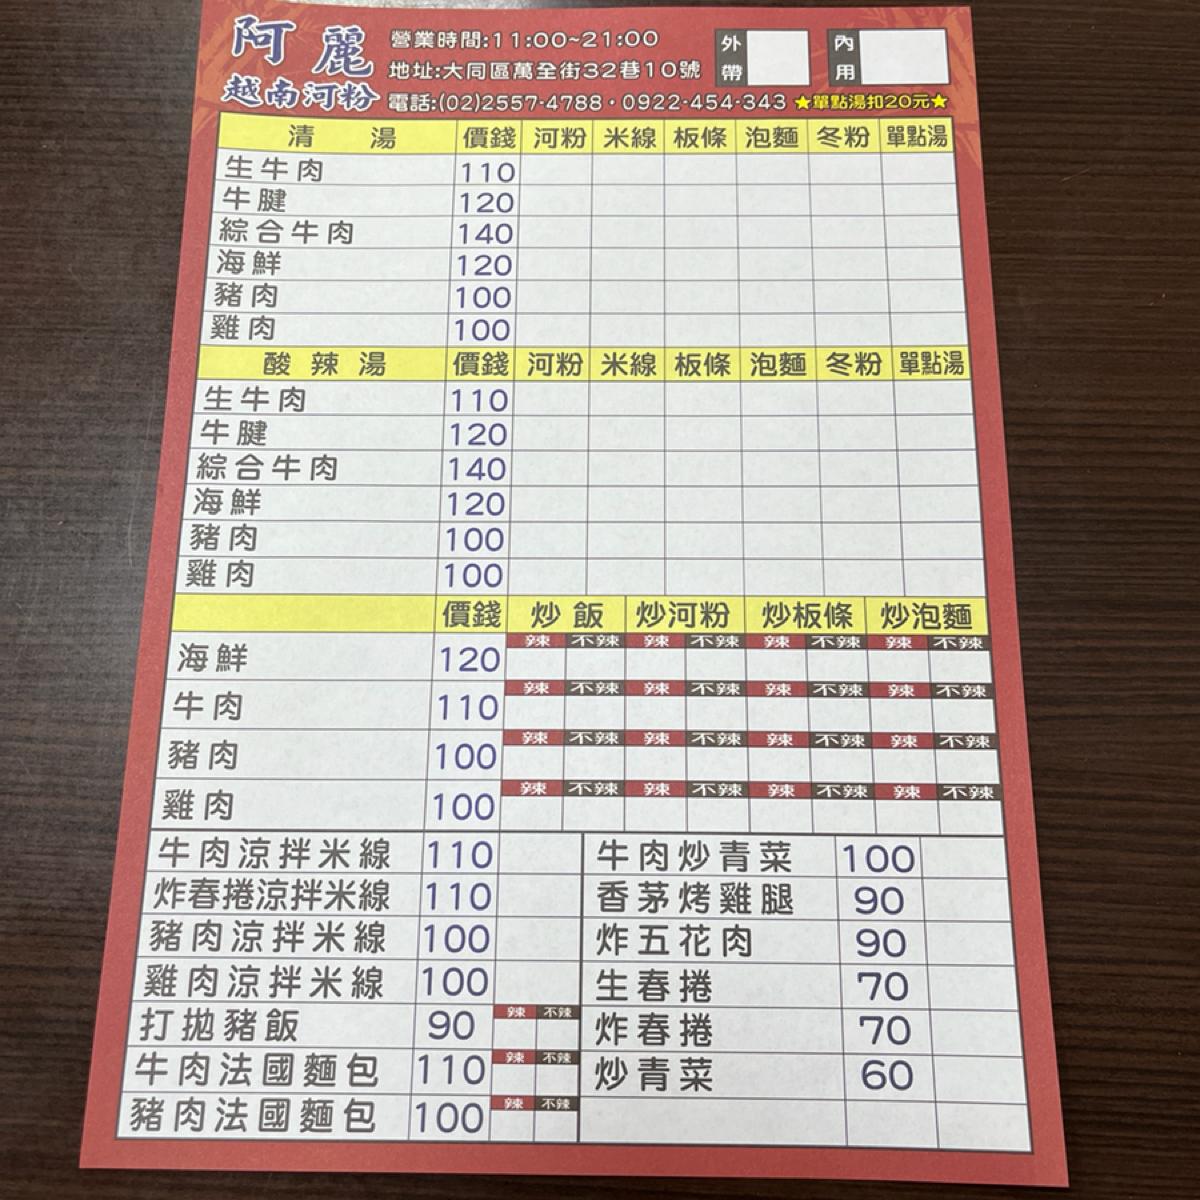 阿麗
越南河粉
營業時間:11:00~21:00
地址:大同區萬全街32巷10號
電話:(02)2557-4788・0922-454-343 ★單點湯扣20元★
外帶
內用
清湯 價錢 河粉 米線 板條 泡麵 冬粉 單點湯
生牛肉 110
牛腱 120
綜合牛肉 140
海鮮 120
豬肉 100
雞肉 100
酸辣湯 價錢 河粉 米線 板條 泡麵 冬粉 單點湯
生牛肉 110
牛腱 120
綜合牛肉 140
海鮮 120
豬肉 100
雞肉 100
價錢 炒飯 炒河粉 炒板條 炒泡麵
海鮮 120 辣 不辣 辣 不辣 辣 不辣 辣 不辣
牛肉 110 辣 不辣 辣 不辣 辣 不辣 辣 不辣
豬肉 100 辣 不辣 辣 不辣 辣 不辣 辣 不辣
雞肉 100 辣 不辣 辣 不辣 辣 不辣 辣 不辣
牛肉涼拌米線 110
炸春捲涼拌米線 110
豬肉涼拌米線 100
雞肉涼拌米線 100
打拋豬飯 90 辣 不辣
牛肉法國麵包 110 辣 不辣
豬肉法國麵包 100 辣 不辣
牛肉炒青菜 100
香茅烤雞腿 90
炸五花肉 90
生春捲 70
炸春捲 70
炒青菜 60